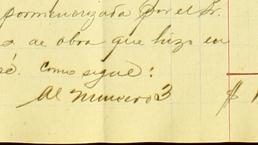 pormenorizada por el Sr.
de obra que hizo en
sé. Como sigue:
Al numero 3 $ 1